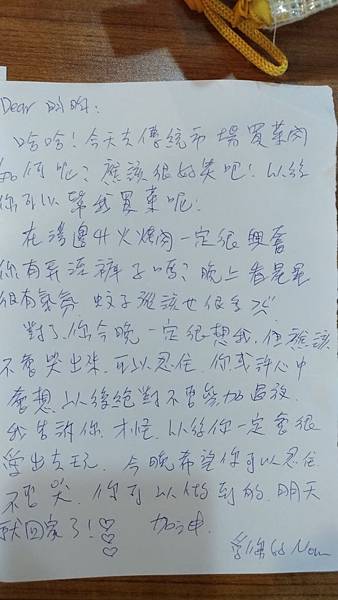 Dear 昀昀:
哈哈!今天去傳統市場買菜肉
如何呢?應該很好笑吧!以後
你可以幫我買菜呢!
在湯邊升火烤肉一定很興奮
你有弄溼褲子嗎?晚上看星星
很有氣氛,蚊子應該也很多
對了,你今晚一定很想我,但應該
不會哭出來,可以忍住,你或許心中
會想,以後絕對不要參加露營
我告訴你,才怪,以後你一定會很
愛出去玩,今晚希望你可以忍住
不要哭,你可以做到的,明天
就回家了!♡♡♡ 加油
愛你的 Mom